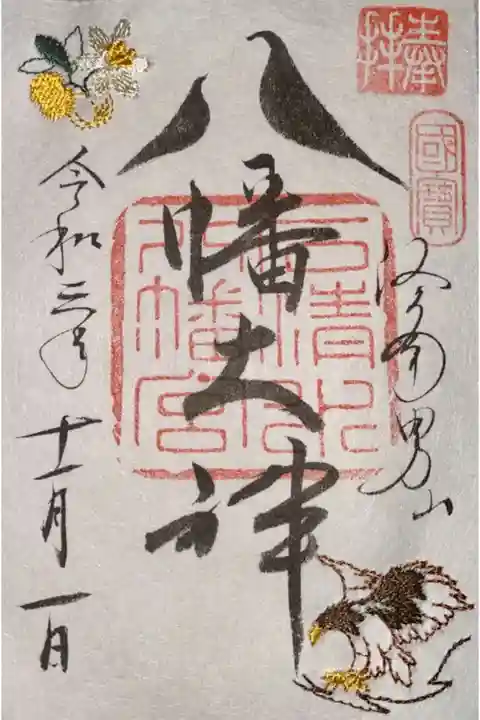 奉拝
國寶
洛南男山
八幡大神
石清水
八幡宮
令和三年 十一月 一日